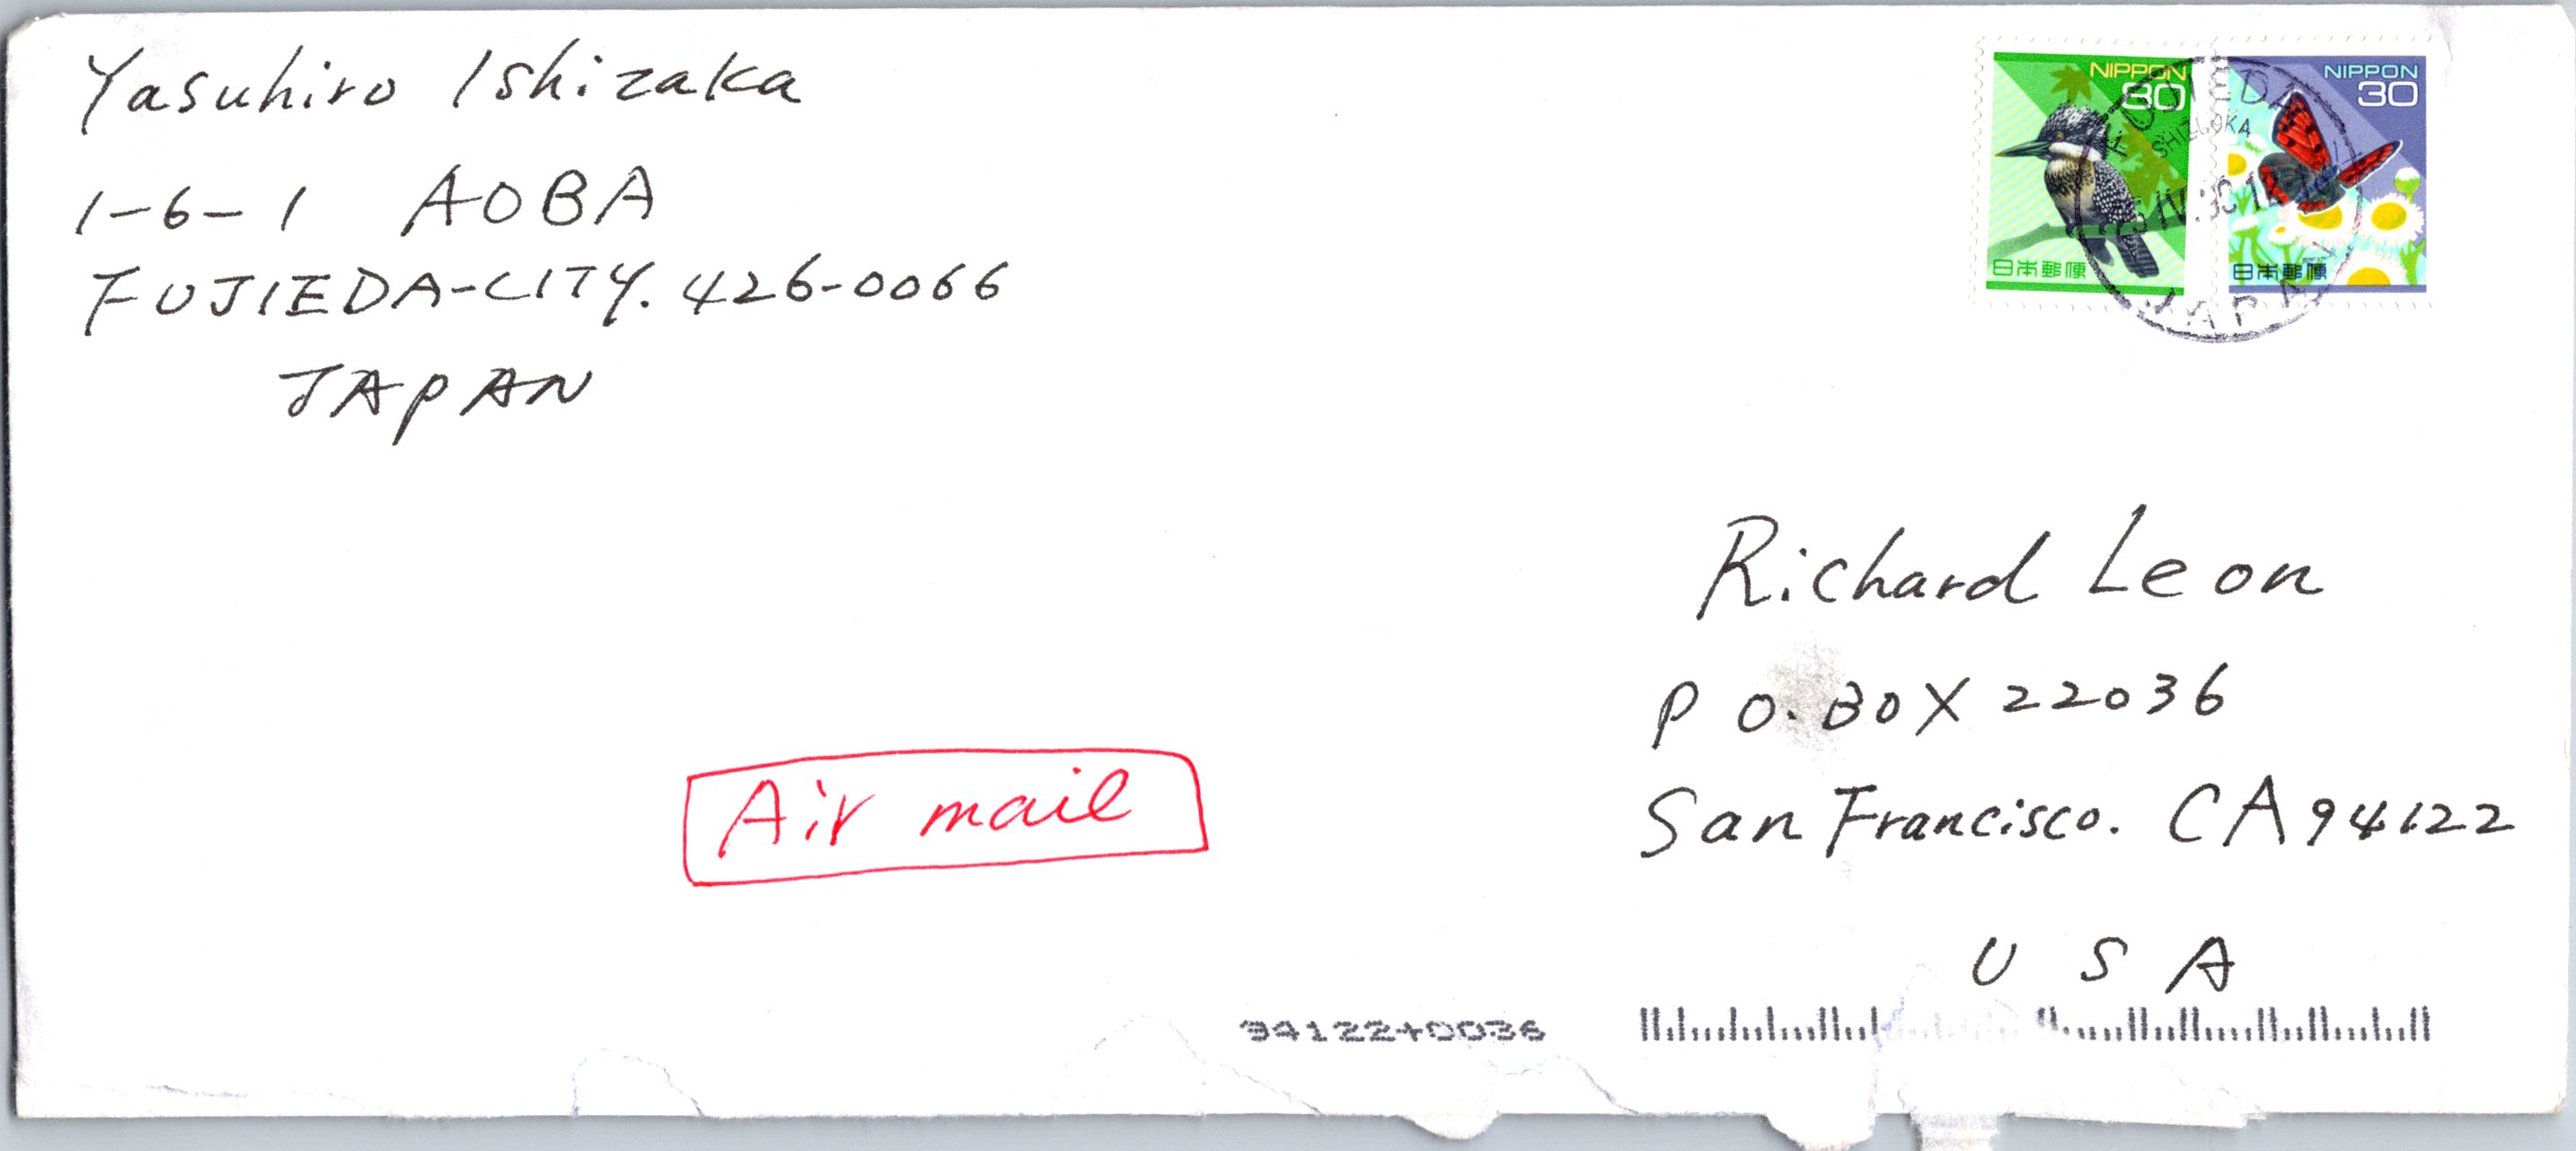 Yasuhiro Ishizaka
1-6-1 AOBA
FUJIEDA-CITY. 426-0066
JAPAN
NIPPON
30
日本郵便
NIPPON
30
日本郵便
FUJIEDA
SHIZUOKA
JAPAN
Richard Leon
P O. BOX 22036
San Francisco. CA 94122
U S A
Air mail
94122+0036